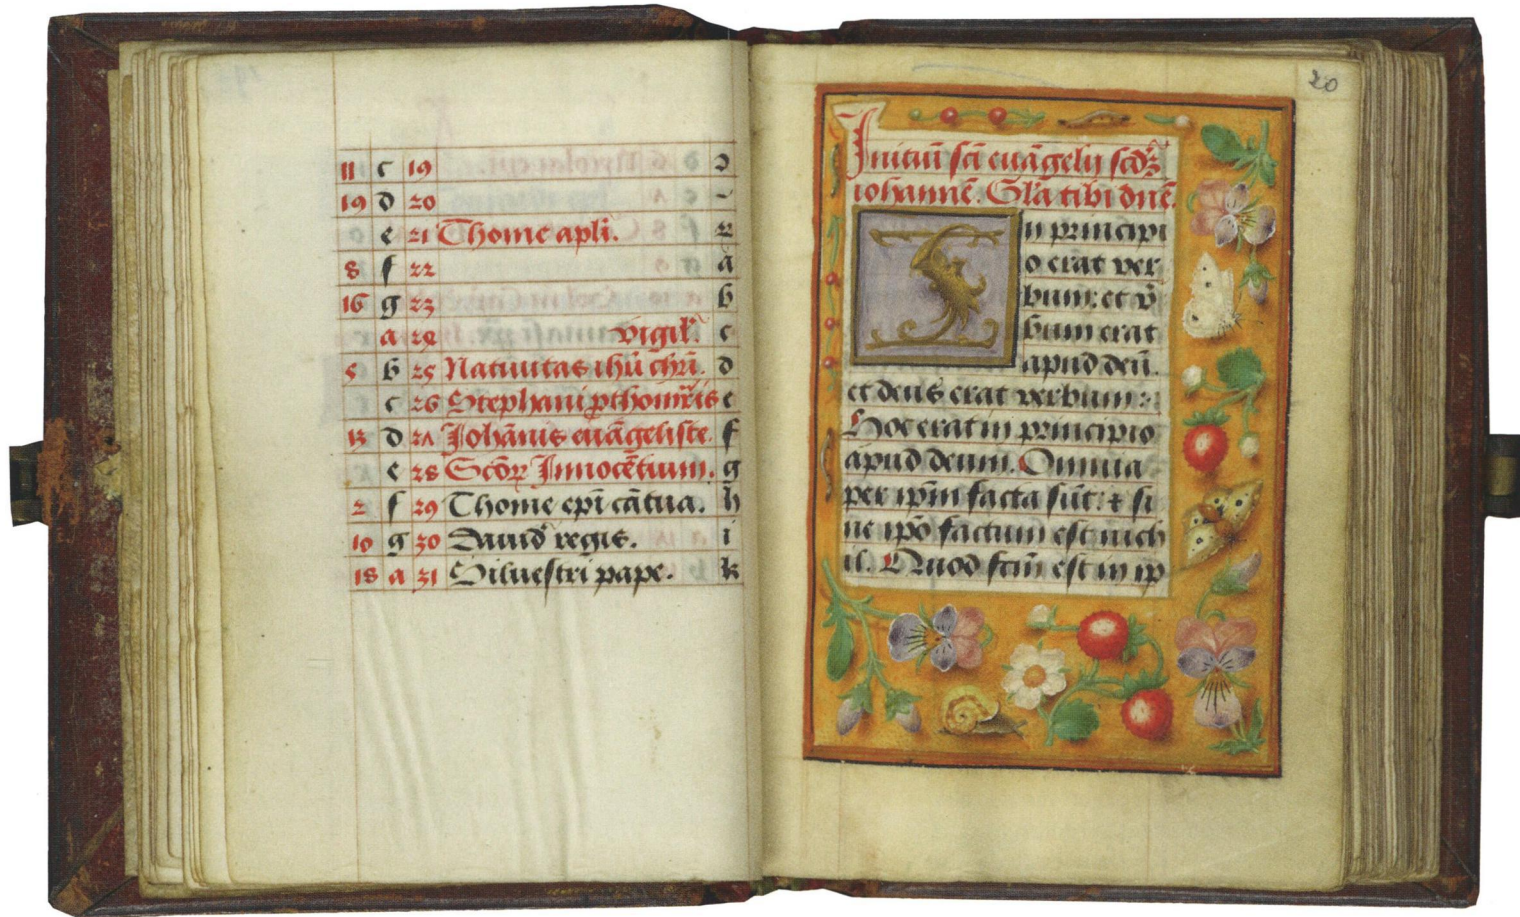 11 c 19
19 d 20
e 21 Thome apli.
8 f 22 a
16 g 23 b
a 24 vigil'. c
5 b 25 Natiuitas ihū chrī. d
c 26 Stephani pthomris e
13 d 27 Johānis euāgeliste. f
e 28 Scōꝝ Innocētium. g
2 f 29 Thome epī cātua. h
10 g 30 Dauid regis. i
18 a 31 Siluestri pape. k
20
Initiū scī euāgelij scd'ꝫ
iohannē. Glā tibi dnē.
In principi
o erat ver
bum: et v̄
bum erat
apud deū.
et deus erat verbum:
Hoc erat in principio
apud deum. Omnia
per ip̄m facta sūt: ⁊ si
ne ipō factum est nich
il. Quod fctm̄ est in ip